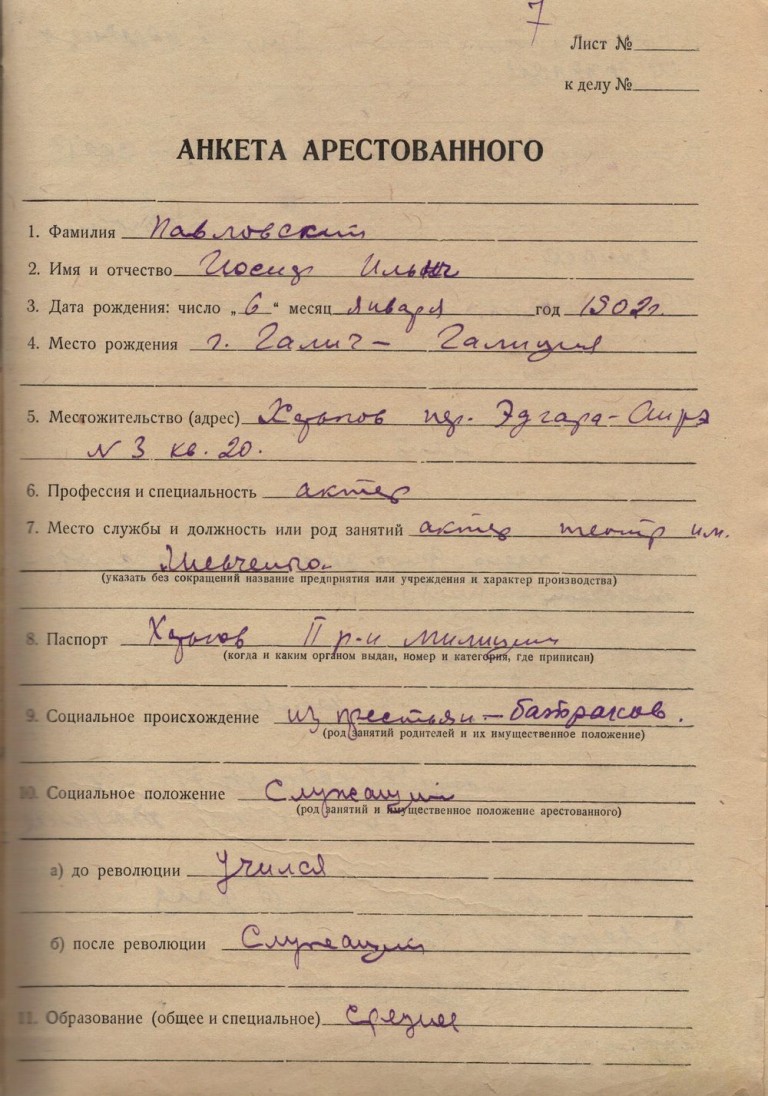 7
Лист №
к делу №
АНКЕТА АРЕСТОВАННОГО
1. Фамилия Павловский
2. Имя и отчество Иосиф Ильич
3. Дата рождения: число „6“ месяц января год 1902г.
4. Место рождения г. Галич - Галиция
5. Местожительство (адрес) Харьков пер.
N 3 кв. 20.
6. Профессия и специальность актер
7. Место службы и должность или род занятий актер театр им.
Шевченко.
(указать без сокращений название предприятия или учреждения и характер производства)
8. Паспорт Харьков П р-н милиции
(когда и каким органом выдан, номер и категория, где приписан)
9. Социальное происхождение из крестьян - батраков.
(род занятий родителей и их имущественное положение)
10. Социальное положение Служащий
(род занятий и имущественное положение арестованного)
а) до революции Учился
б) после революции Служащий
11. Образование (общее и специальное) Среднее